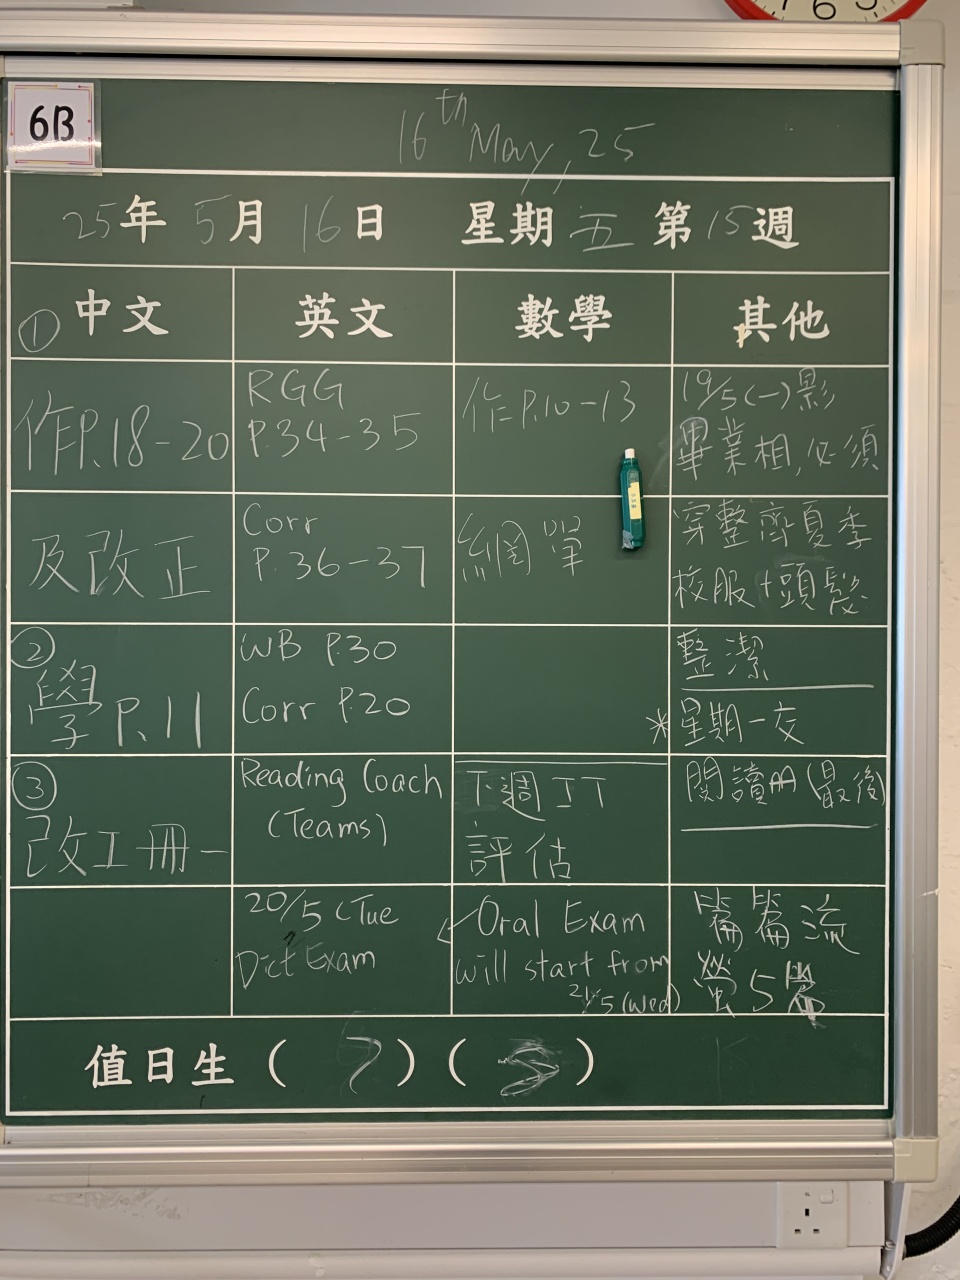 6B
16th May, 25
25年5月16日 星期五 第15週
中文
英文
數學
其他
①
作P.18-20
及改正
②
學P.11
③
改工冊一
RGG
P.34-35
Corr
P.36-37
WB P.30
Corr P.20
Reading Coach
(Teams)
20/5 (Tue
Dict Exam
作P.10-13
網單
下週JT
評估
Oral Exam
will start from
21/5(Wed)
19/5(一)影
畢業相,必須
穿整齊夏季
校服+頭髮
整潔
*星期一交
閱讀(最後)
篇篇流
螢5篇
值日生(7)()